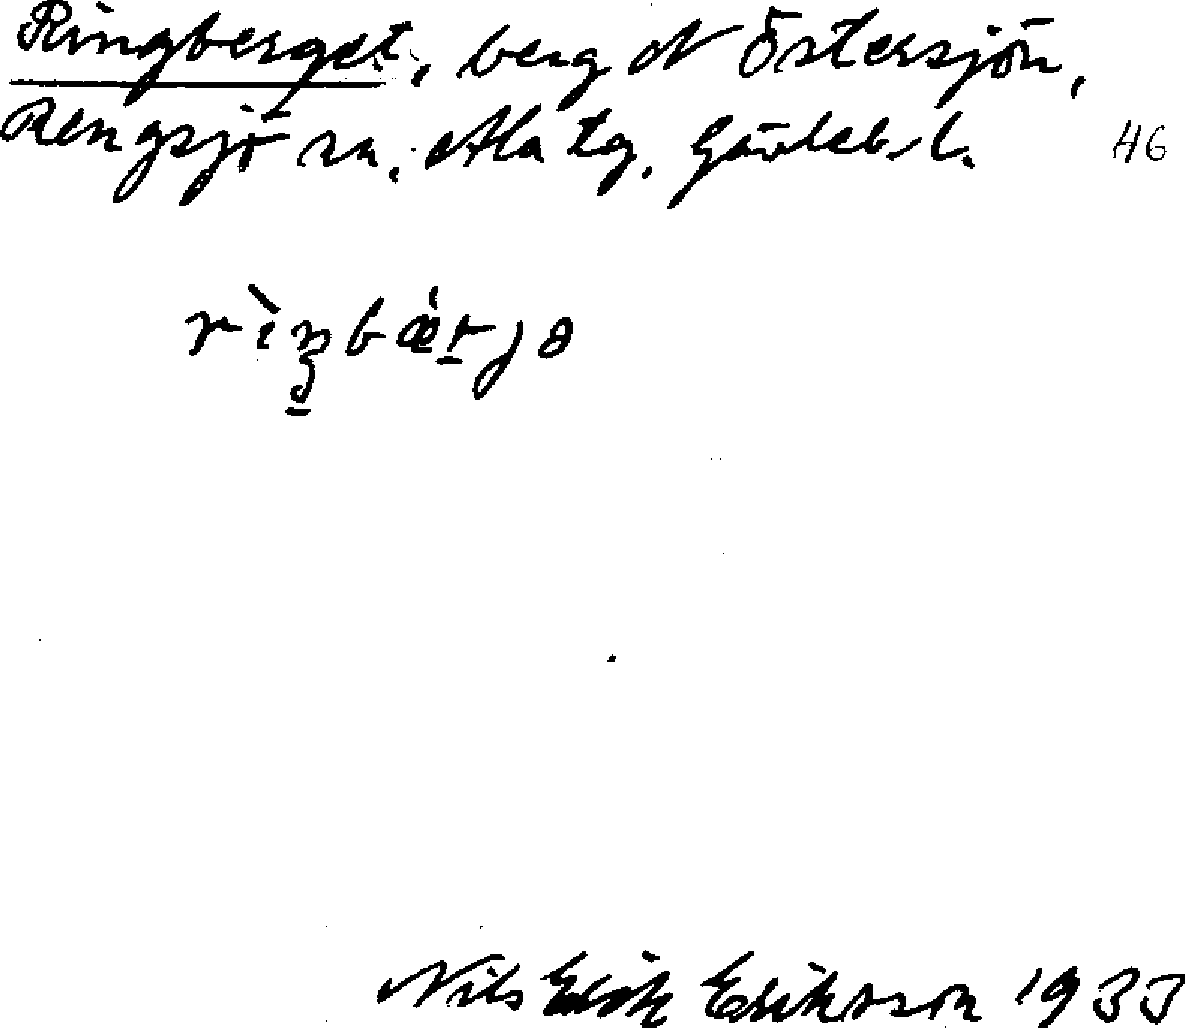 Ringberget, berg N Östersjön,
Rengsjö sn, Ala tg, Gävleb. l. 46
Nils Erik Eriksson 1933